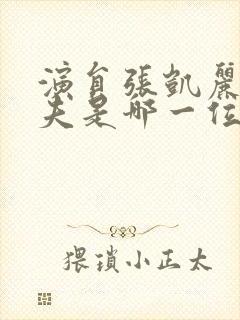 演員張凱麗
夫是哪一位
猥瑣小正太